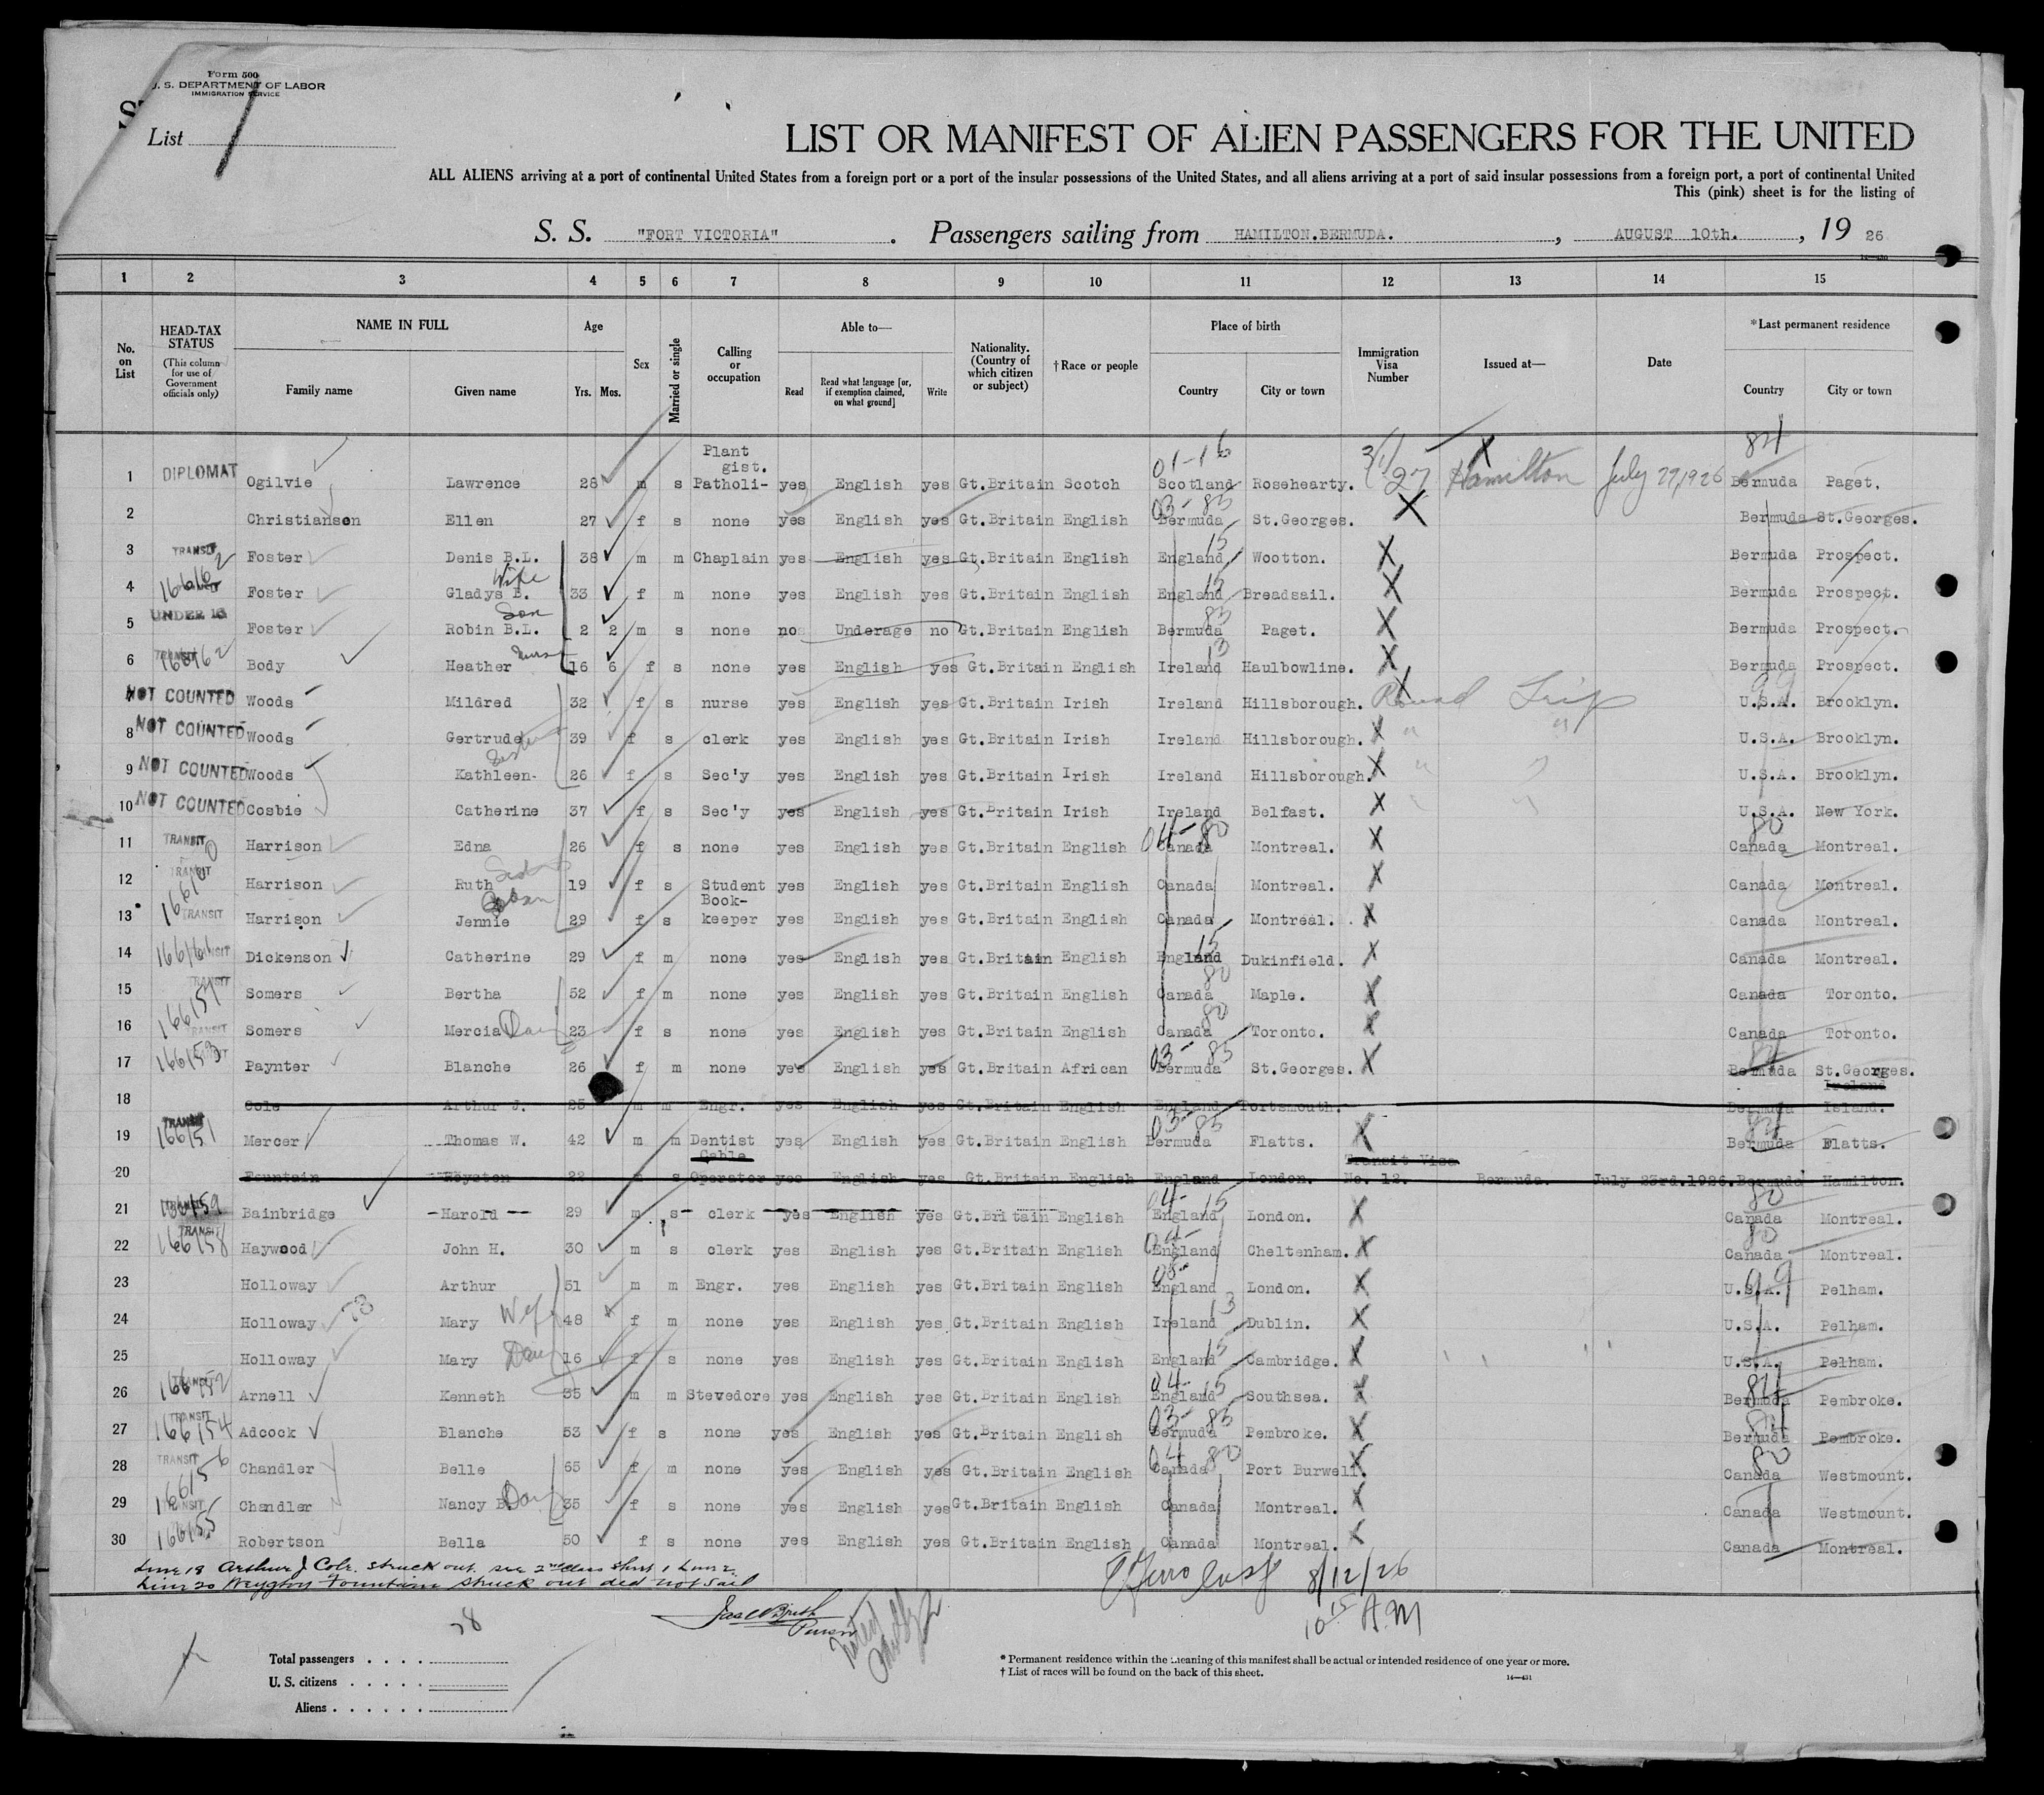 Form 500
U. S. DEPARTMENT OF LABOR
IMMIGRATION SERVICE
List 1
LIST OR MANIFEST OF ALIEN PASSENGERS FOR THE UNITED
ALL ALIENS arriving at a port of continental United States from a foreign port or a port of the insular possessions of the United States, and all aliens arriving at a port of said insular possessions from a foreign port, a port of continental United
This (pink) sheet is for the listing of
S. S. "FORT VICTORIA". Passengers sailing from HAMILTON.BERMUDA. , AUGUST 10th. , 19 26
1 2 3 4 5 6 7 8 9 10 11 12 13 14 15
No. on List
HEAD-TAX STATUS
(This column for use of Government officials only)
NAME IN FULL
Family name Given name
Age
Yrs. Mos.
Sex
Married or single
Calling or occupation
Able to—
Read Read what language [or, if exemption claimed, on what ground] Write
Nationality. (Country of which citizen or subject)
†Race or people
Place of birth
Country City or town
Immigration Visa Number
Issued at—
Date
*Last permanent residence
Country City or town
1 DIPLOMAT Ogilvie Lawrence 28 m s Plant Patholi-gist. yes English yes Gt.Britain Scotch 01-16 Scotland Rosehearty. 27 Hamilton July 27, 1926 84 Bermuda Paget.
2 Christianson Ellen 27 f s none yes English yes Gt.Britain English 03-85 Bermuda St.Georges. X Bermuda St.Georges.
3 TRANSIT Foster Denis B.L. 38 m m Chaplain yes English yes Gt.Britain English 15 England Wootton. X Bermuda Prospect.
4 16616 Foster Gladys E. Wife 33 f m none yes English yes Gt.Britain English 15 England Breadsail. X Bermuda Prospect.
5 UNDER 16 Foster Robin B.L. Son 2 2 m s none no Underage no Gt.Britain English 85 Bermuda Paget. X Bermuda Prospect.
6 TRANSIT 166162 Body Heather Nurse 16 6 f s none yes English yes Gt.Britain English 13 Ireland Haulbowline. X Bermuda Prospect.
7 NOT COUNTED Woods Mildred 32 f s nurse yes English yes Gt.Britain Irish Ireland Hillsborough. X Round Trip 99 U.S.A. Brooklyn.
8 NOT COUNTED Woods Gertrude 39 f s clerk yes English yes Gt.Britain Irish Ireland Hillsborough. X " " U.S.A. Brooklyn.
9 NOT COUNTED Woods Kathleen. Sister 26 f s Sec'y yes English yes Gt.Britain Irish Ireland Hillsborough. X " " U.S.A. Brooklyn.
10 NOT COUNTED Cosbie Catherine 37 f s Sec'y yes English yes Gt.Britain Irish Ireland Belfast. X " " U.S.A. New York.
11 TRANSIT Harrison Edna 26 f s none yes English yes Gt.Britain English 04-80 Canada Montreal. X 80 Canada Montreal.
12 TRANSIT Harrison Ruth Sister 19 f s Student yes English yes Gt.Britain English Canada Montreal. X Canada Montreal.
13 TRANSIT Harrison Jennie 29 f s Book-keeper yes English yes Gt.Britain English Canada Montreal. X Canada Montreal.
14 166161 TRANSIT Dickenson Catherine 29 f m none yes English yes Gt.Britain English 15 England Dukinfield. X Canada Montreal.
15 TRANSIT Somers Bertha 52 f m none yes English yes Gt.Britain English 80 Canada Maple. X Canada Toronto.
16 166157 TRANSIT Somers Mercia Dau 23 f s none yes English yes Gt.Britain English 80 Canada Toronto. X Canada Toronto.
17 166153 Paynter Blanche 26 f m none yes English yes Gt.Britain African 03-85 Bermuda St.Georges. X 84 Bermuda St.Georges.
18 Cole Arthur J. 25 m m Engr. yes English yes Gt.Britain English England Portsmouth. Bermuda Ireland Island.
19 TRANSIT 166151 Mercer Thomas W. 42 m m Dentist yes English yes Gt.Britain English 03-85 Bermuda Flatts. X 84 Bermuda Flatts.
20 Fountain Royston 22 m s Cable Operator yes English yes Gt.Britain English England London. Transit Visa No. 12. Bermuda. July 23rd.1926. Bermuda Hamilton.
21 166159 Bainbridge Harold 29 m s clerk yes English yes Gt.Britain English 04-15 England London. X 80 Canada Montreal.
22 TRANSIT 166158 Haywood John H. 30 m s clerk yes English yes Gt.Britain English 04- England Cheltenham. X 80 Canada Montreal.
23 Holloway Arthur 51 m m Engr. yes English yes Gt.Britain English 08- England London. X 99 U.S.A. Pelham.
24 Holloway Mary Wife 48 f m none yes English yes Gt.Britain English 13 Ireland Dublin. X U.S.A. Pelham.
25 Holloway Mary Dau 16 f s none yes English yes Gt.Britain English 15 England Cambridge. X U.S.A. Pelham.
26 TRANSIT 166152 Arnell Kenneth 35 m m Stevedore yes English yes Gt.Britain English 04-15 England Southsea. X 84 Bermuda Pembroke.
27 TRANSIT 166154 Adcock Blanche 53 f s none yes English yes Gt.Britain English 03-85 Bermuda Pembroke. X 84 Bermuda Pembroke.
28 TRANSIT 166156 Chandler Belle 65 f m none yes English yes Gt.Britain English 04 80 Canada Port Burwell. X 80 Canada Westmount.
29 TRANSIT Chandler Nancy B. Dau 35 f s none yes English yes Gt.Britain English Canada Montreal. X Canada Westmount.
30 166155 Robertson Bella 50 f s none yes English yes Gt.Britain English Canada Montreal. X Canada Montreal.
Line 18 Arthur J Cole. struck out. see 2nd class sheet 1 Line 2.
Line 20 Fountain struck out did not sail
8/12/26
10 15 A.M
Purser
28
Total passengers . . . .
U. S. citizens . . . . .
Aliens . . . . . .
* Permanent residence within the meaning of this manifest shall be actual or intended residence of one year or more.
† List of races will be found on the back of this sheet.
14—431